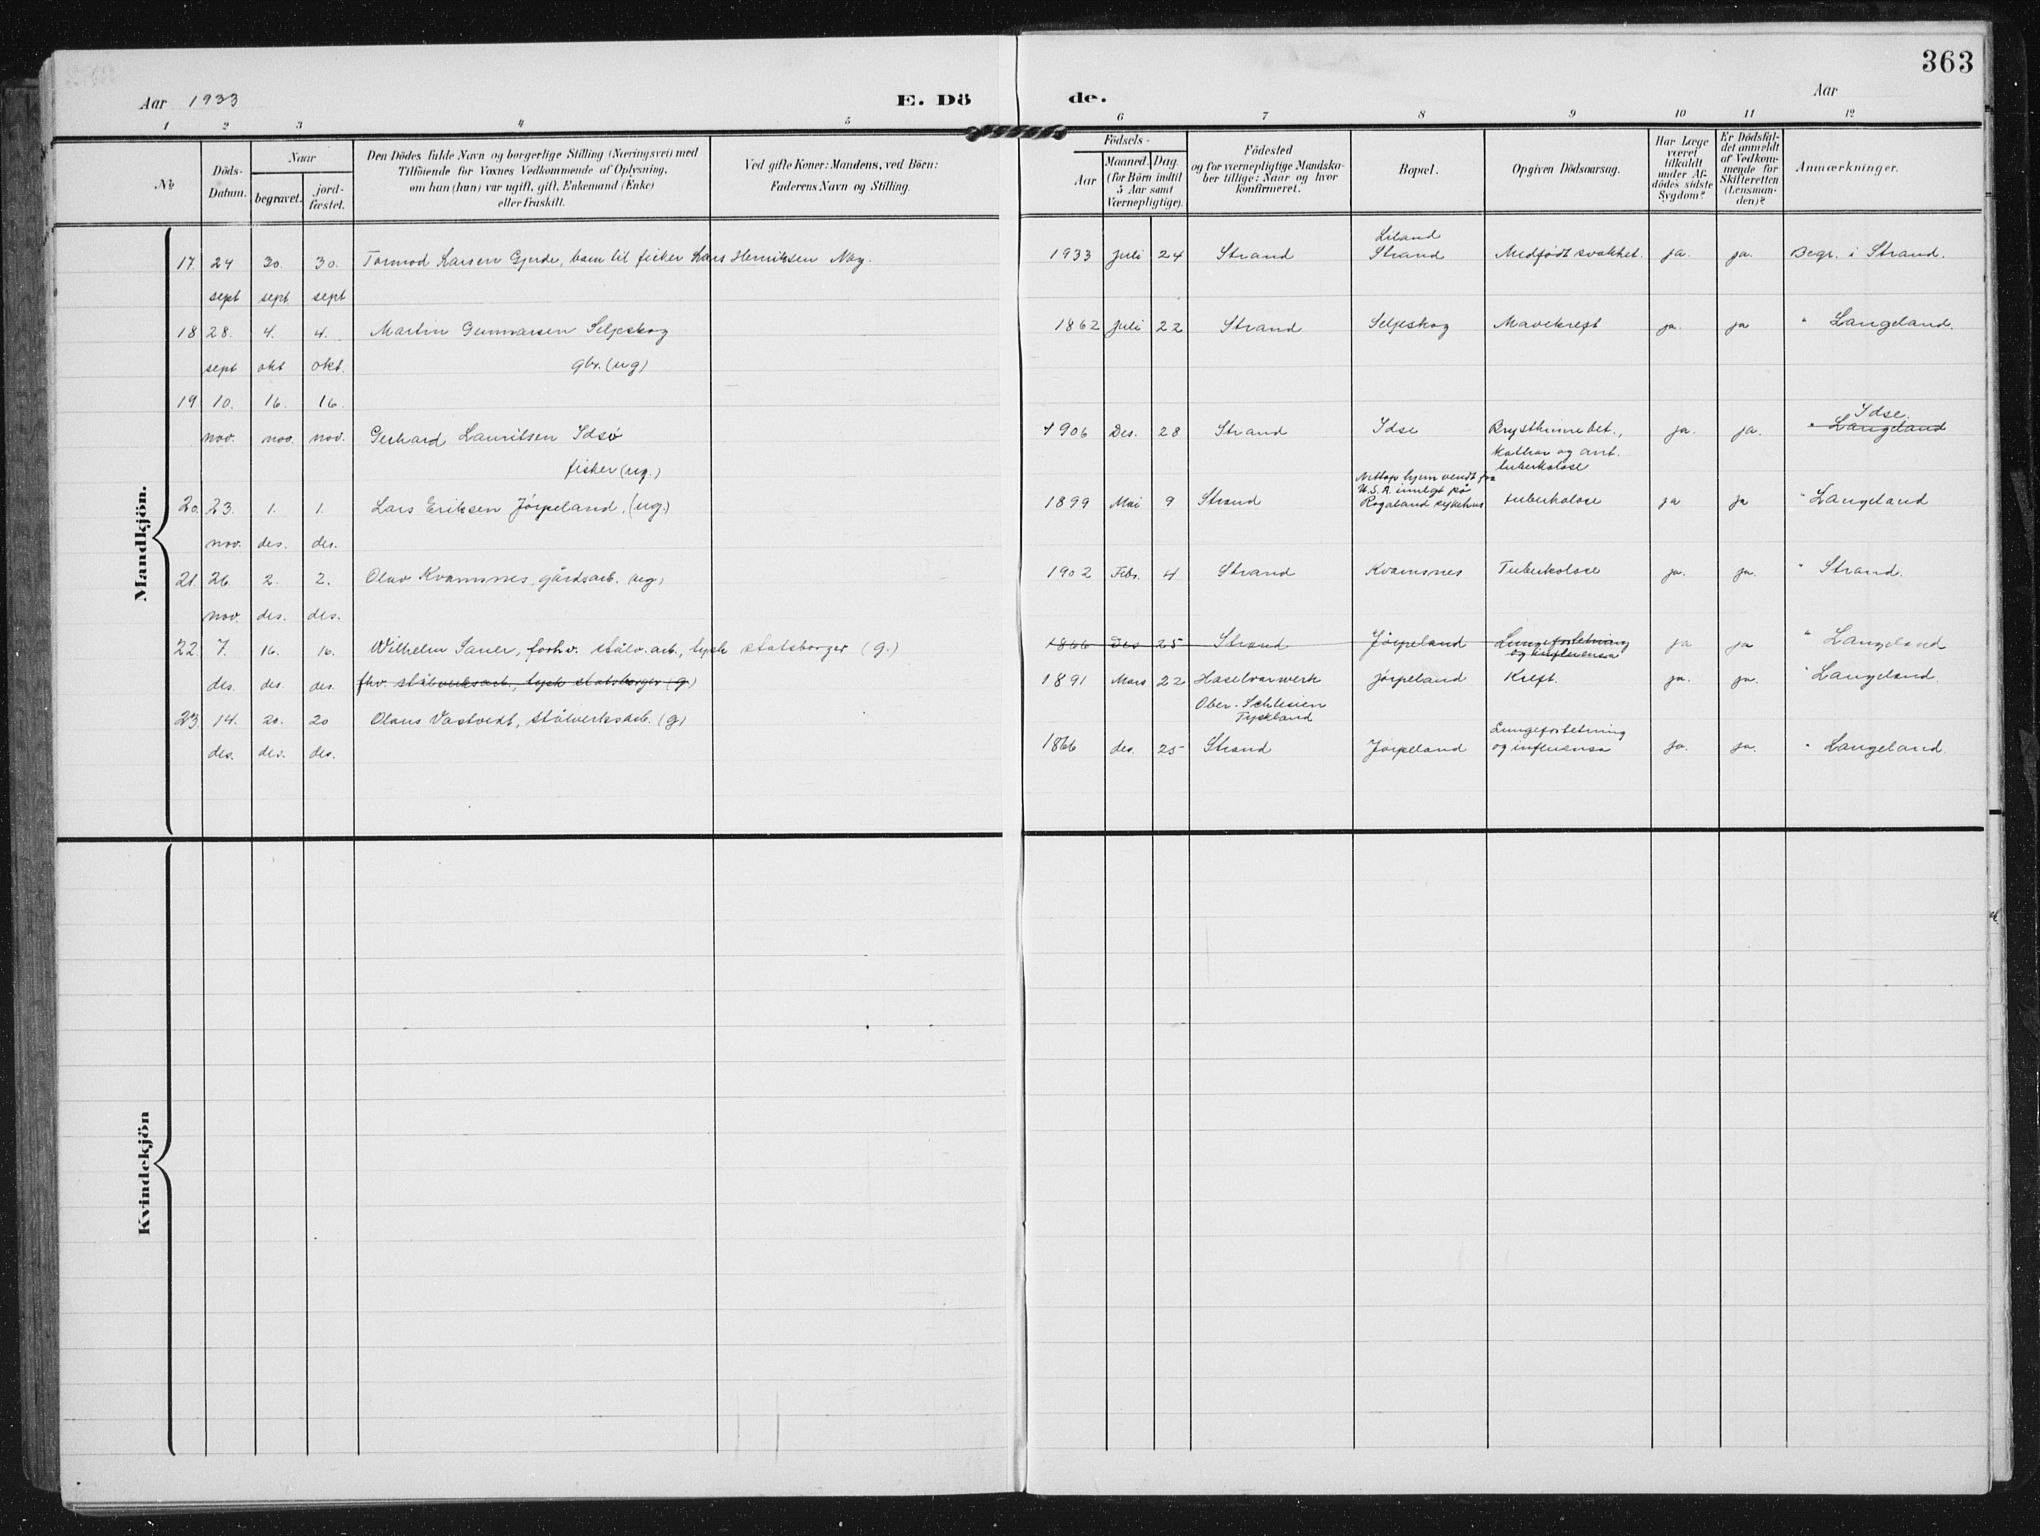 363
Aar 1933 E. Dö de. Aar
1 2 3 4 5 6 7 8 9 10 11 12
№ Döds-Datum. Naar begravet. jord-fæstet. Den Dödes fulde Navn og borgerlige Stilling (Næringsvei) med Tilföiende for Voxnes Vedkommende af Oplysning, om han (hun) var ugift, gift, Enkemand (Enke) eller fraskilt. Ved gifte Koner: Mandens, ved Börn: Faderens Navn og Stilling. Födsels- Aar Maaned. Dag. (for Börn indtil 5 Aar samt Værnepligtige). Födested og for værnepligtige Mandskaber tillige: Naar og hvor konfirmeret. Bopæl. Opgiven Dödsaarsag. Har Læge været tilkaldt under Afdödes sidste Sygdom? Er Dödsfaldet anmeldt af Vedkommende for Skifteretten (Lensmanden)? Anmærkninger.
Mandkjön.
Liland
17 24 30. 30. Tormod Larsen Gjerde, barn til fisker Lars Henriksen Nag. 1933 Juli 24 Strand Strand Medfødt svakhet. ja. ja. Begr. i Strand.
sept sept sept
18 28. 4. 4. Martin Gunnarsen Seljeskog 1862 Juli 22 Strand Seljeskog Mavekreft ja. ja " Langeland.
sept okt okt. gbr. (ug)
19 10. 16. 16. Idse.
nov. nov. nov. Gerhard Lauritsen Idsø 1906 Des. 28 Strand Idse Brysthinnebet., ja. ja. " Langeland
fisker (ug.) Kathar og ant. tuberkolose
Nettop hjemvendt fra U.S.A. innlagt på
20. 23. 1. 1. Lars Eriksen Jørpeland. (ug.) 1899 Mai 9 Strand Rogaland sykehus tuberkolose ja ja " Langeland
nov. des. des.
21. 26. 2. 2. Olav Kvamsnes, gårdsarb. (ug) 1902 Febr. 4 Strand Kvamsnes Tuberkolose ja. ja. " Strand.
nov. des. des.
22. 7. 16. 16. Wilhelm Sauer, forhv. stålv. arb., tysk statsborger (g.) 1866 Des 25 Strand Jørpeland Lungefortetning og influensa ja ja " Langeland
des. des. des. fhv. stålverksarb., tysk statsborger (g) 1891 Mars 22 Haselvorwerk Jørpeland Kreft. ja. ja. " Langeland.
23. 14. 20. 20 Olaus Vastvedt, stålverksarb. (g) Ober-Schlesien Tyskland
Lungefortetning
des. des. des. 1866 des. 25 Strand Jørpeland og influensa ja. ja. " Langeland.
Kvindekjön